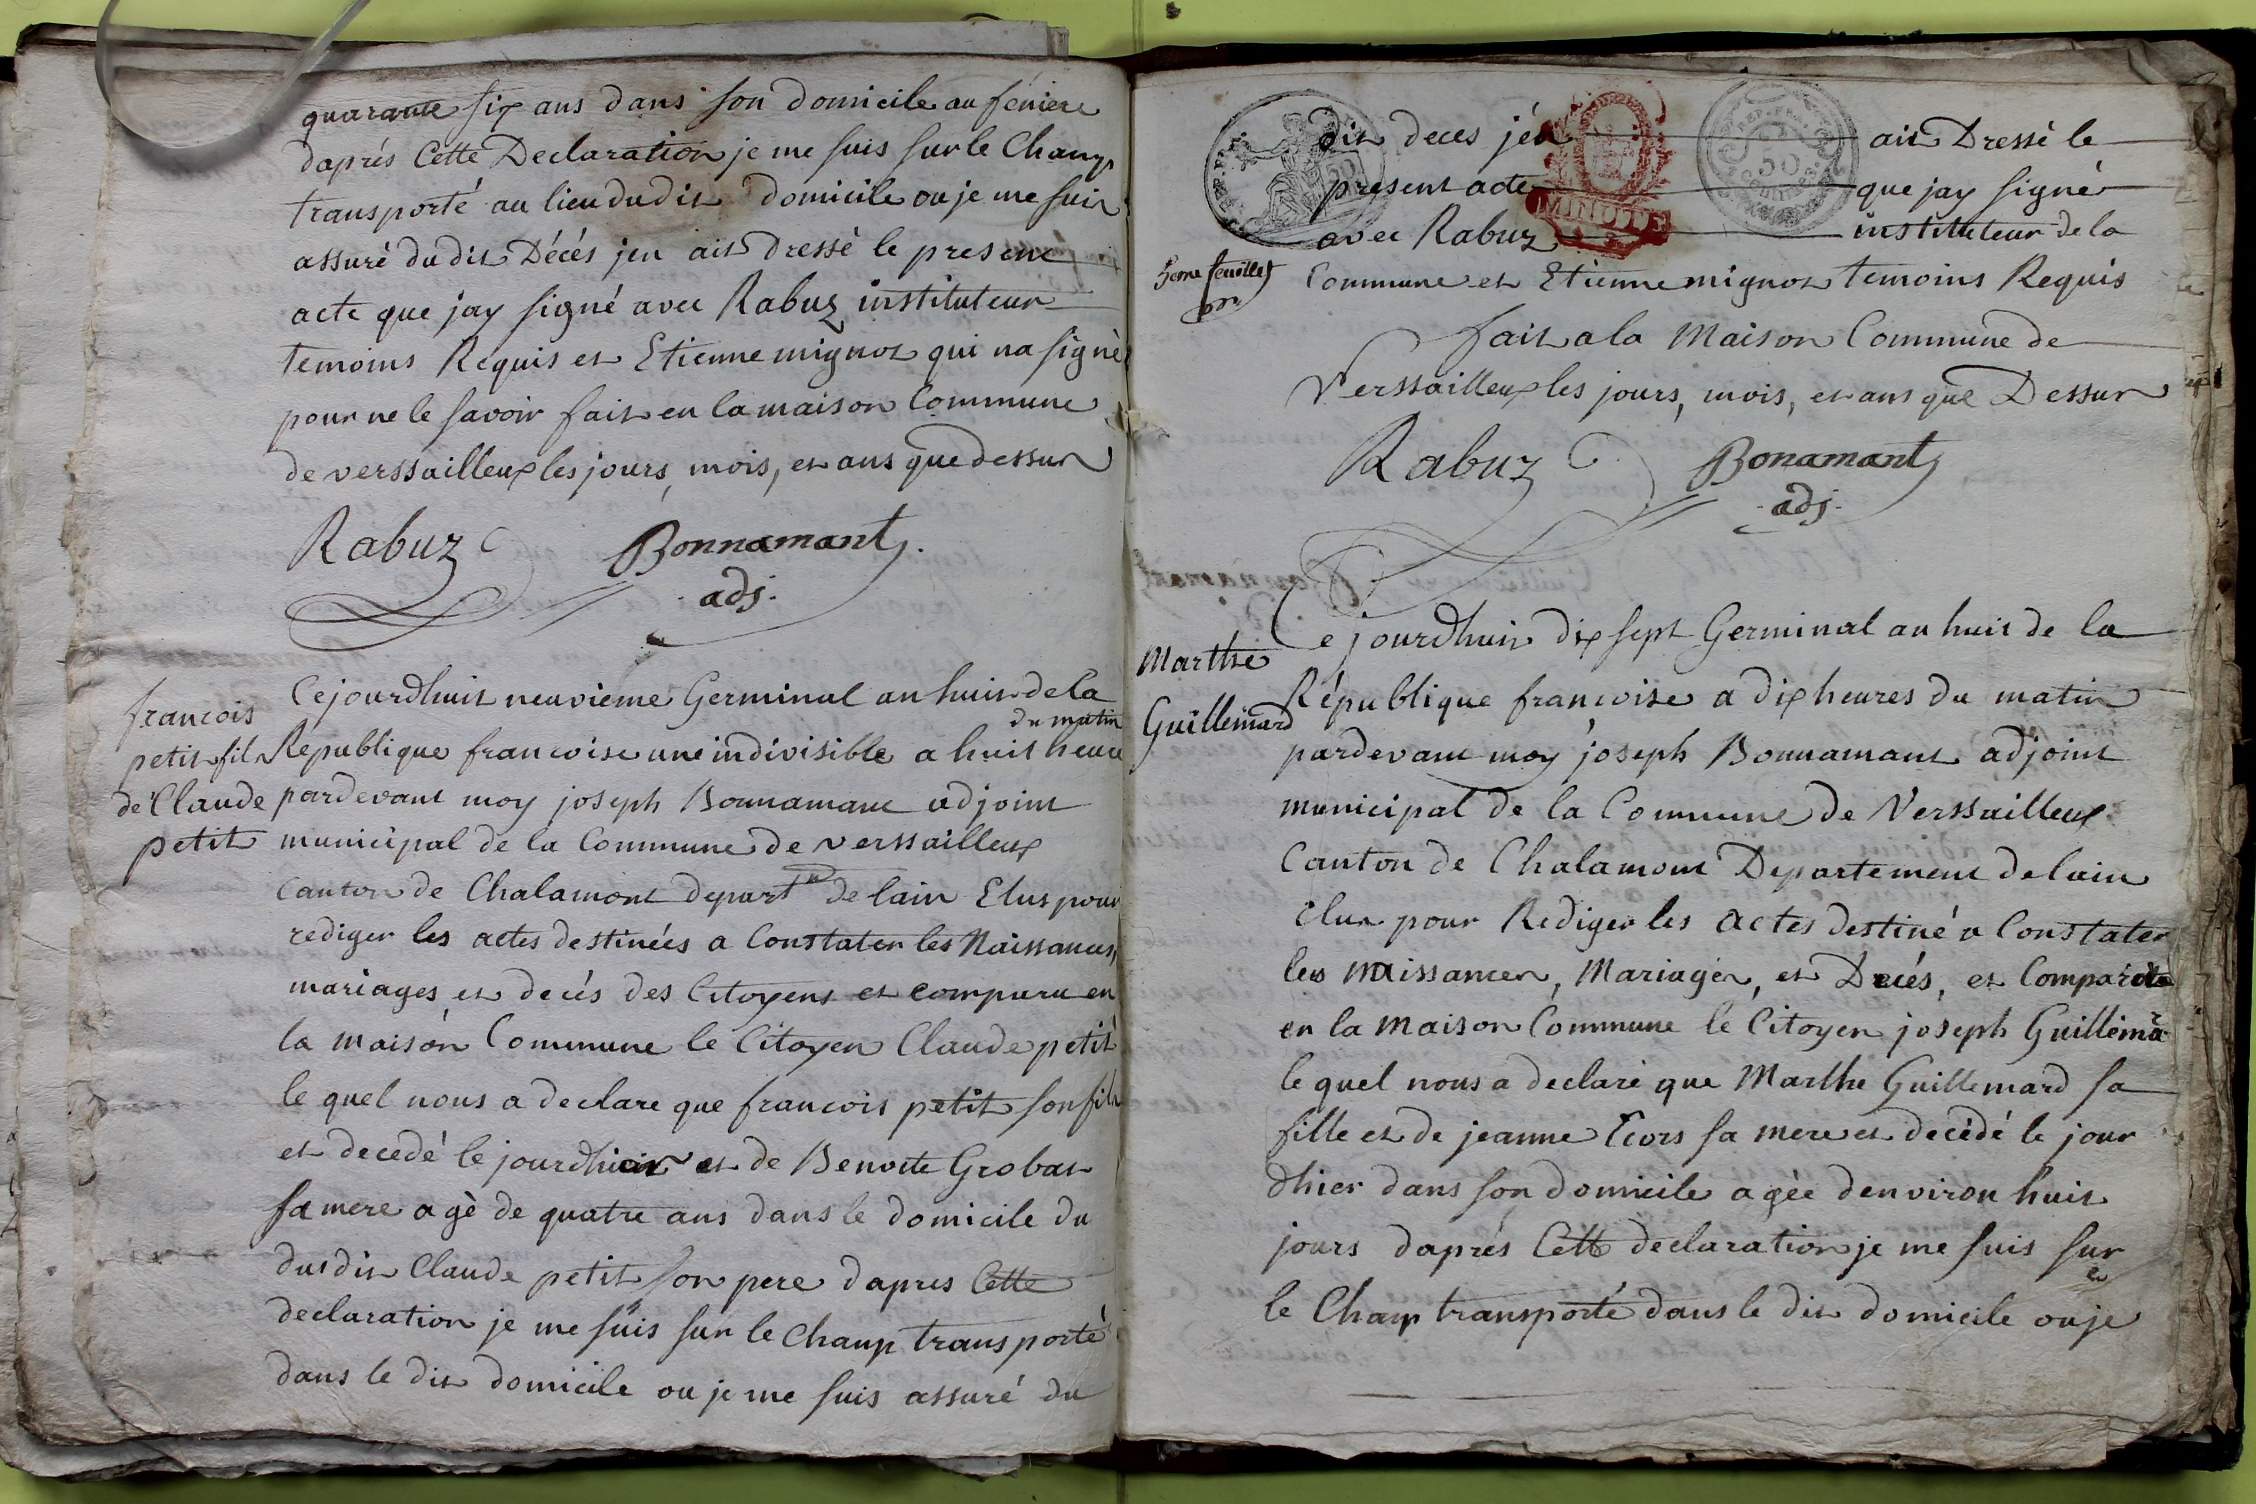 quarante six ans dans son domicile au féniere
daprés Cette Declaration je me suis sur le Champ
transporté au lieu dudit domicile ou je me suis
assuré dudit Décés jen ait Dressé le present
acte que jay signé avec Rabuz instituteur
temoins Requis et Etienne mignot qui na signé
pour ne le savoir fait en la maison Commune
de verssailleux les jours, mois, et ans que dessus
Rabuz Bonnamant
adj.
francois
petit fils
de Claude
petit
Cejourdhuit neuvieme Germinal an huit de la
du matin
République francoise une indivisible a huit heure
pardevant moy joseph Bonnamant adjoint
municipal de la Commune de verssailleux
Canton de Chalamont depart.t de lain Elus pour
rediger les actes destinées a Constater les Naissances,
mariages et decés des Citoyens et comparu en
la maison Commune le Citoyen Claude petit
le quel nous a declare que francois petit son fils
et decedé le jourdhuit et de Benoite Grobat
sa mere agè de quatre ans dans le domicile du
dudit Claude petit son pere dapres Cette
declaration je me suis sur le Champ transporté
dans le dit domicile ou je me suis assuré du
dit deces jén ait Dressé le
present acte que jay signé
MINUTE
REP. FRA.
50
CENTIMES
avec Rabuz instituteur de la
5eme feuillet
Commune et Etienne mignot temoins Requis
fait a la Maison Commune de
Verssailleux les jours, mois, et ans que Dessus
Rabuz Bonamant
adj.
Marthe
Guillemard
Ce jourdhuit dix sept Germinal an huit de la
République francoise a dix heures du matin
pardevant moy joseph Bonnamant adjoint
municipal de la Commune de Verssailleux
Canton de Chalamont Departement de lain
Elus pour Rediger les actes destiné a Constater
les naissances, Mariages, et Decés, et Comparüe
en la maison Commune le Citoyen joseph Guillemar
le quel nous a declaré que Marthe Guillemard sa
fille et de jeanne Ecors sa mere et decédé le jour
dhier dans son domicile agèe denviron huit
jours daprés Cette declaration je me suis sur
le Champ transporté dans le dit domicile ou je